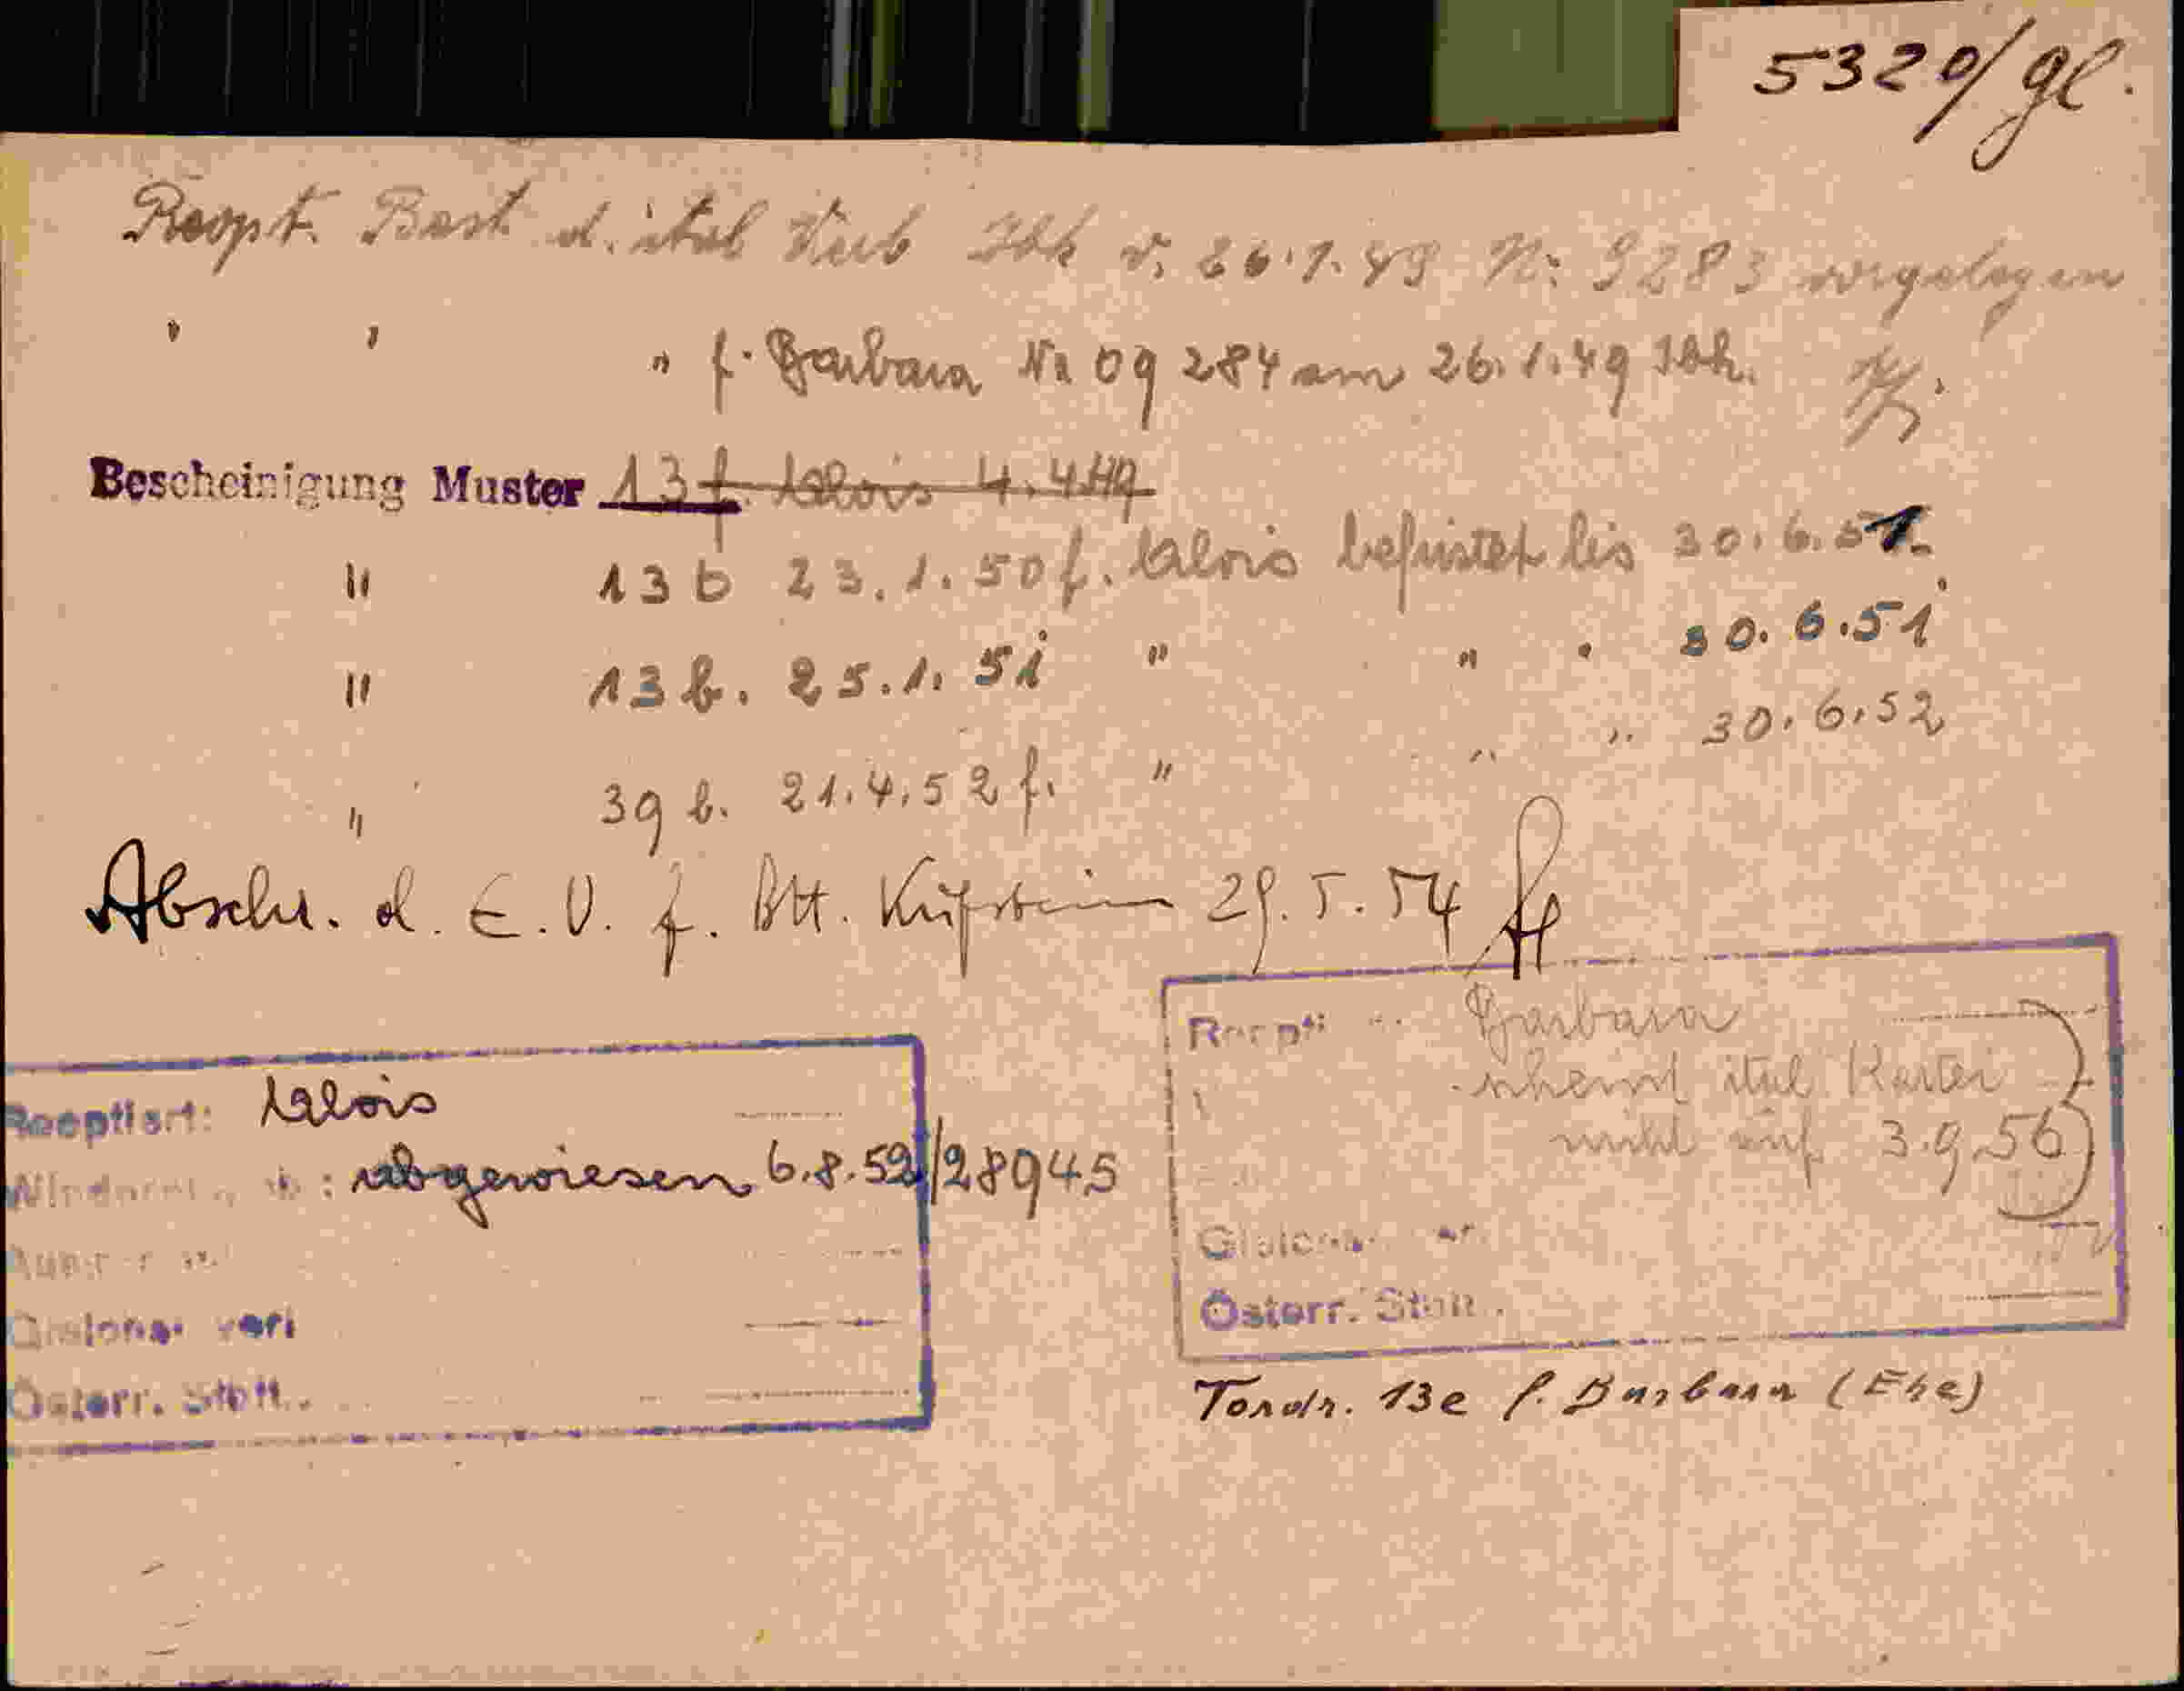 5320/gl.
Reopt. Best d. ital Kub Ibk v. 26.1.49 Nr 9283 vorgelegen
" " " f. Barbara Nr 09284 am 26.1.49 Ibk.
Bescheinigung Muster 13 f. Alois 4.4.49
" 13 b 23.1.50 f. Alois befristet bis 30.6.51.
" 13 b. 25.1.51 " " " 30.6.51
" 39 b. 21.4.52 f. " " " 30.6.52
Abschr. d. E.V. f. BH. Kufstein 29.5.54
Reopti Barbara
scheint ital Kartei
nicht auf 3.9.56
Österr. Stbtt.
Reoptiert: Alois
abgewiesen 6.8.52/28945
Österr. Stbtt.
Tondr. 13e f. Barbara (Ehe)